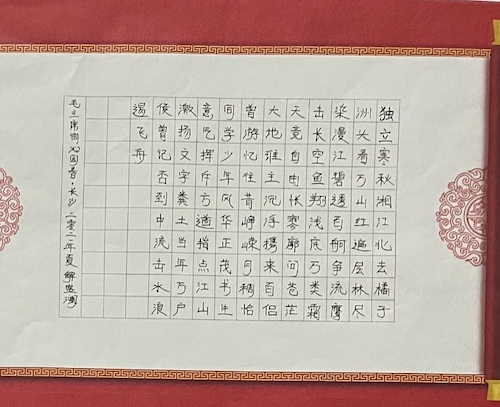 独立寒秋湘江北去橘子
洲头看万山红遍层林尽
染漫江碧透百舸争流鹰
击长空鱼翔浅底万类霜
天竞自由怅寥廓问苍茫
大地谁主沉浮携来百侣
曾游忆往昔峥嵘月稠恰
同学少年风华正茂书生
意气挥斥方遒指点江山
激扬文字粪土当年万户
侯曾记否到中流击水浪
遏飞舟
毛主席词沁园春·长沙 二零二一年夏